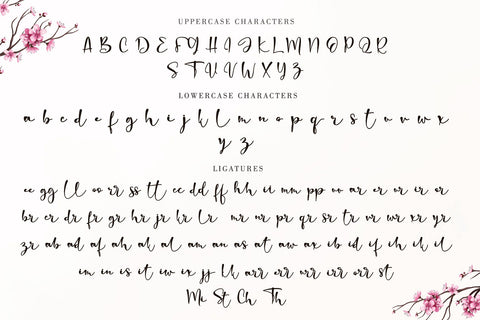 UPPERCASE CHARACTERS
A B C D E F G H I J K L M N O P Q R
S T U V W X Y Z
LOWERCASE CHARACTERS
a b c d e f g h i j k l m n o p q r s t u v w x
y z
LIGATURES
ee gg ll oo rr ss tt cc dd ff hh ii mm pp oo ar er ir or er
br cr dr fr gr hr jr kr lr mr nr pr qr sr tr vr wr xr yr
zr ab ad af ah ak al am an as at aw ax ib id if ih ik il
im in is it iw ix jj lk arr err irr orr urr st
Mc St Ch Th